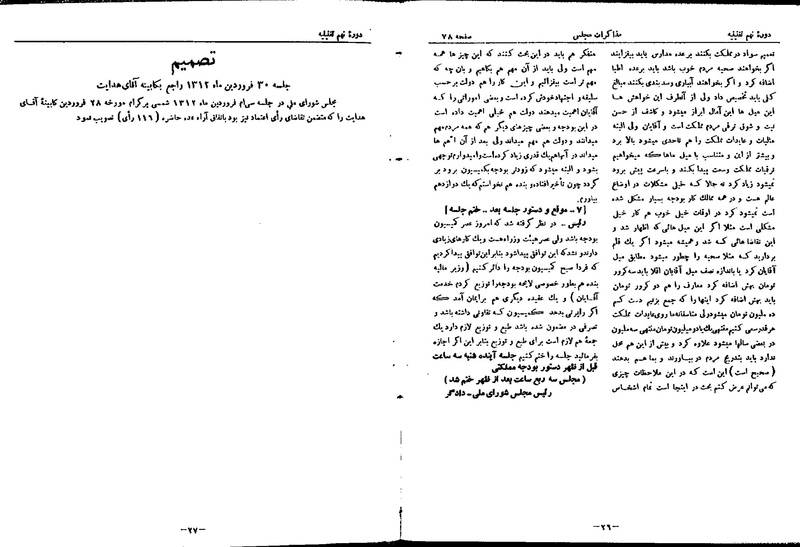 دورهٔ نهم تقنینیه
مذاکرات مجلس
صفحه ۷۸
تعمیم سواد در مملکت بکنند برعده مدارس باید بیفزایند
اگر بخواهند صحیه مردم خوب باشد باید برعده اطبا
اضافه کرد و اگر بخواهند آبیاری وسدبندی بکنند مبالغ
کزافی باید تخصیص داد ولی از آنطرف این خواهش ها
این میل ها این آمال ابراز میشود و کاشف از حسن
نیت و شوق ترقی مردم مملکت است و آقایان ولی البته
مالیات و عایدات مملکت را هم تاحدی میشود بالا برد
و بیشتر از این و متناسب با میل ماها که میخواهیم
ترقیات مملکت وسعت پیدا بکنند و باسرعت پیش برود
نمیشود زیاد کرد نه حالا که خیلی مشکلات در اوضاع
عالم هست و در همه ممالک کار بودجه بسیار مشکل شده
است نمیشود کرد در اوقات خیلی خوب هم کار خیلی
مشکلی است مثلا اگر این میل هائی که اظهار شد و
این تقاضاهائی که شد وهمیشه میشود اگر یك قلم
بردارید که مثلا صحیه را چطور میشود مطابق میل
آقایان کرد یا باندازه نصف میل آقایان اقلا باید سه کرور
تومان بهش اضافه کرد معارف را هم دو کرور تومان
باید بهش اضافه کرد اینها را که جمع بزنیم دست کم
ده ملیون تومان میشود ولی متاسفانه ما روی عایدات مملکت
هرقدر سعی کنیم منتهی یك یا دو ملیون تومان منتهی سه ملیون
در بعضی سالها میشود علاوه کرد و بیش از این هم محل
ندارد باید بتدریج مردم در بیاورند و بما هم بدهند
( صحیح است ) این است که در این ملاحظات چیزی
که می توانم عرض کنم بحث در اینجا است تمام اشخاص
متفکر هم باید در این بحث کنند که این چیز ها همه
مهم است ولی باید از آن مهم هم بکاهیم و بان چه که
مهم تر است بیفزائیم و این کار را هم دولت برحسب
سلیقه و اجتهاد خودش کرده است و بعضی اموراتی را که
آقایان اهمیت میدهند دولت هم خیلی اهمیت داده است
در این بودجه و بعضی چیزهای دیگر هم که همه مردم مهم
میدانند و دولت هم مهم میداند ولی بعد از آن اهم ها
میداند در آنها هم یك قدری زیاد کرده است و امیدوارم توجهی
بشود و البته میشود که زودتر بودجه بکمیسیون برود بر
گردد چون تأخیر افتاده و بنده هم نخواستم که یك دوازدهم
بیاورم
[ ۷ - موقع و دستور جلسه بعد - ختم جلسه ]
رئیس - در نظر گرفته شد که امروز عصر کمیسیون
بودجه باشد ولی عصر هیئت وزراء هست و یك کارهای زیادی
دارند و نشد که این توافق پیدا شود بنابر این توافق پیدا کردیم
که فردا صبح کمیسیون بودجه را دائر کنیم ( وزیر مالیه
بنده هم بطور خصوصی لایحه بودجه را توزیع کردم خدمت
آقایان ) و یك عقیده دیگری هم برایمان آمد که
اگر راپرتی بدهد کمیسیون که تفاوتی داشته باشد و
تصرفی در مضمون شده باشد طبع و توزیع لازم دارد یك
جمعهٔ هم لازم است برای طبع و توزیع بنابر این اگر اجازه
بفرمائید جلسه را ختم کنیم جلسه آینده شنبه سه ساعت
قبل از ظهر دستور بودجه مملکتی
( مجلس سه ربع ساعت بعد از ظهر ختم شد )
رئیس مجلس شورای ملی - دادگر
-۲۶-
دورهٔ نهم تقنینیه
تصمیم
جلسه ۳۰ فروردین ماه ۱۳۱۲ راجع بکابینه آقای هدایت
مجلس شورای ملی در جلسه سی‌ام فروردین ماه ۱۳۱۲ شمسی پرگرام مورخه ۲۸ فروردین کابینهٔ آقای
هدایت را که متضمن تقاضای رأی اعتماد نیز بود باتفاق آراء عده حاضره ( ۱۱۶ رأی ) تصویب نمود
-۲۷-